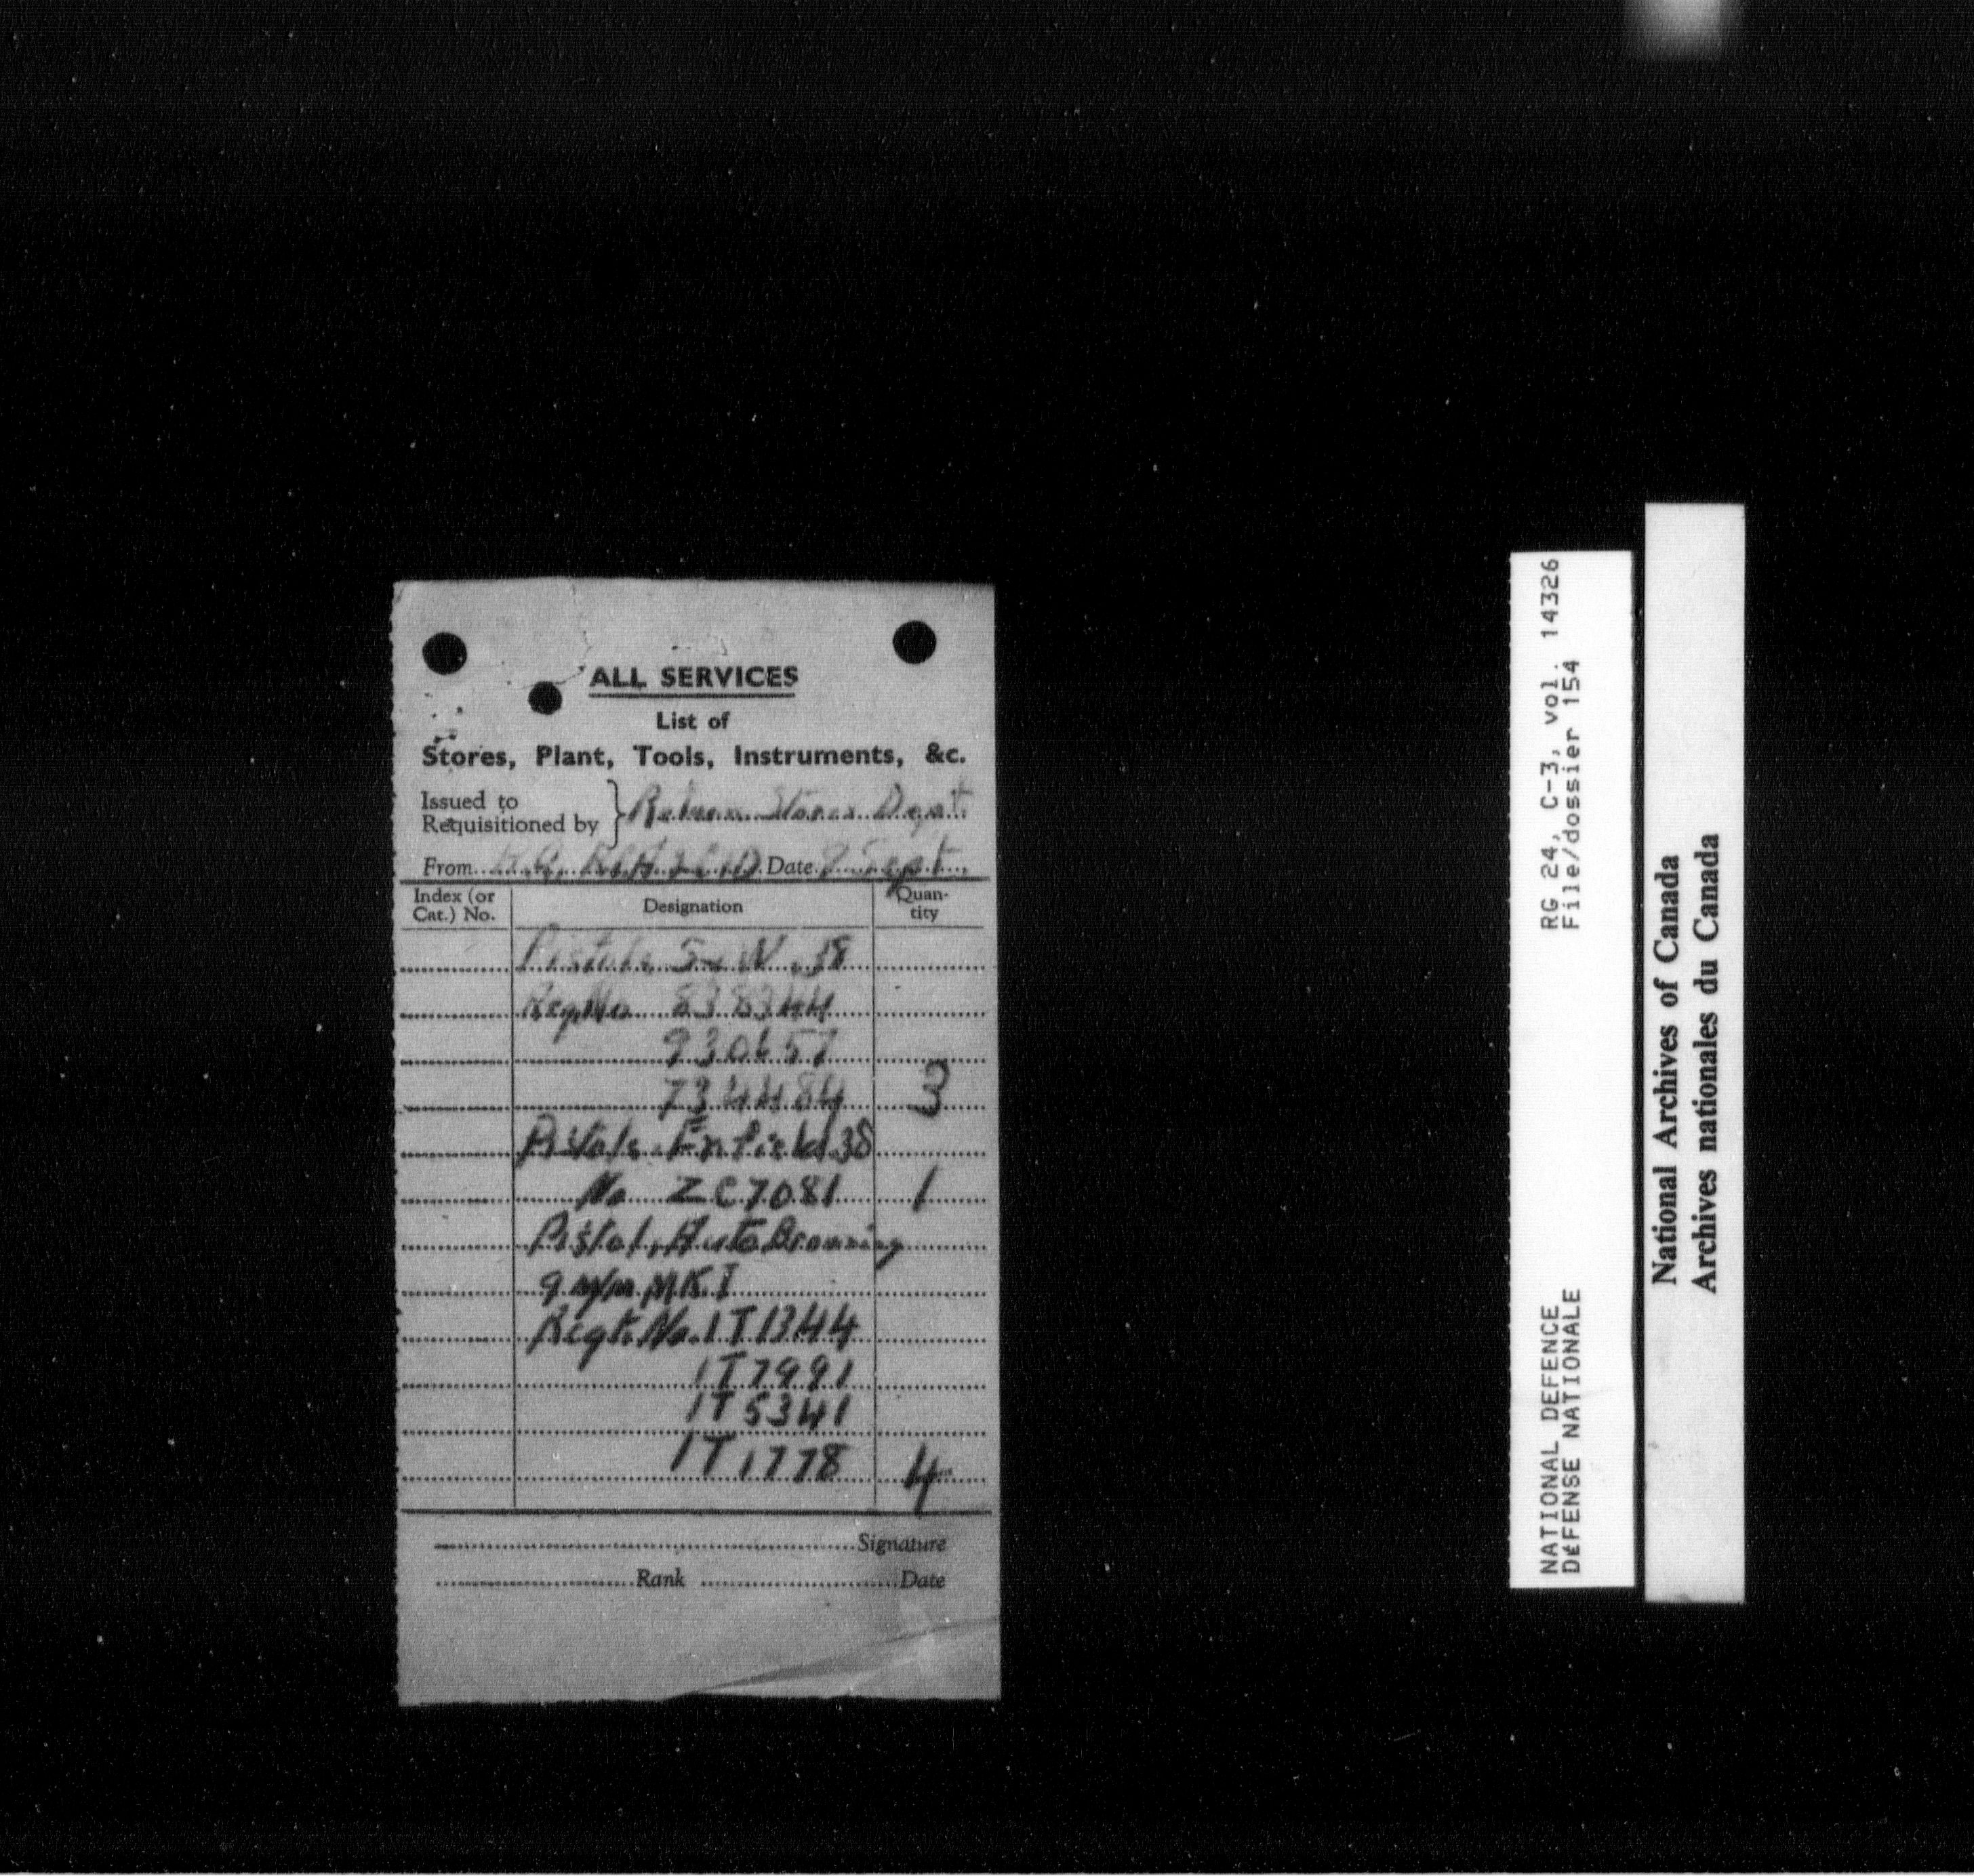 ALL SERVICES
List of
Stores, Plant, Tools, Instruments, &c.
Issued to
Requisitioned by } Return Stores Dept.
From H.Q. Date 9 Sept.
Index (or Cat.) No. Designation Quantity
Pistols S & W .38
Reg No 838344
930657
734484 3
Pistols Enfield 38
No ZC7081 1
Pistol, Auto Browning
9 m/m MK I
Regt. No. 1T1344
1T7991
1T5341
1T1778 4
Signature
Rank Date
RG 24, C-3, vol. 14326
File/dossier 154
NATIONAL DEFENCE
DÉFENSE NATIONALE
National Archives of Canada
Archives nationales du Canada